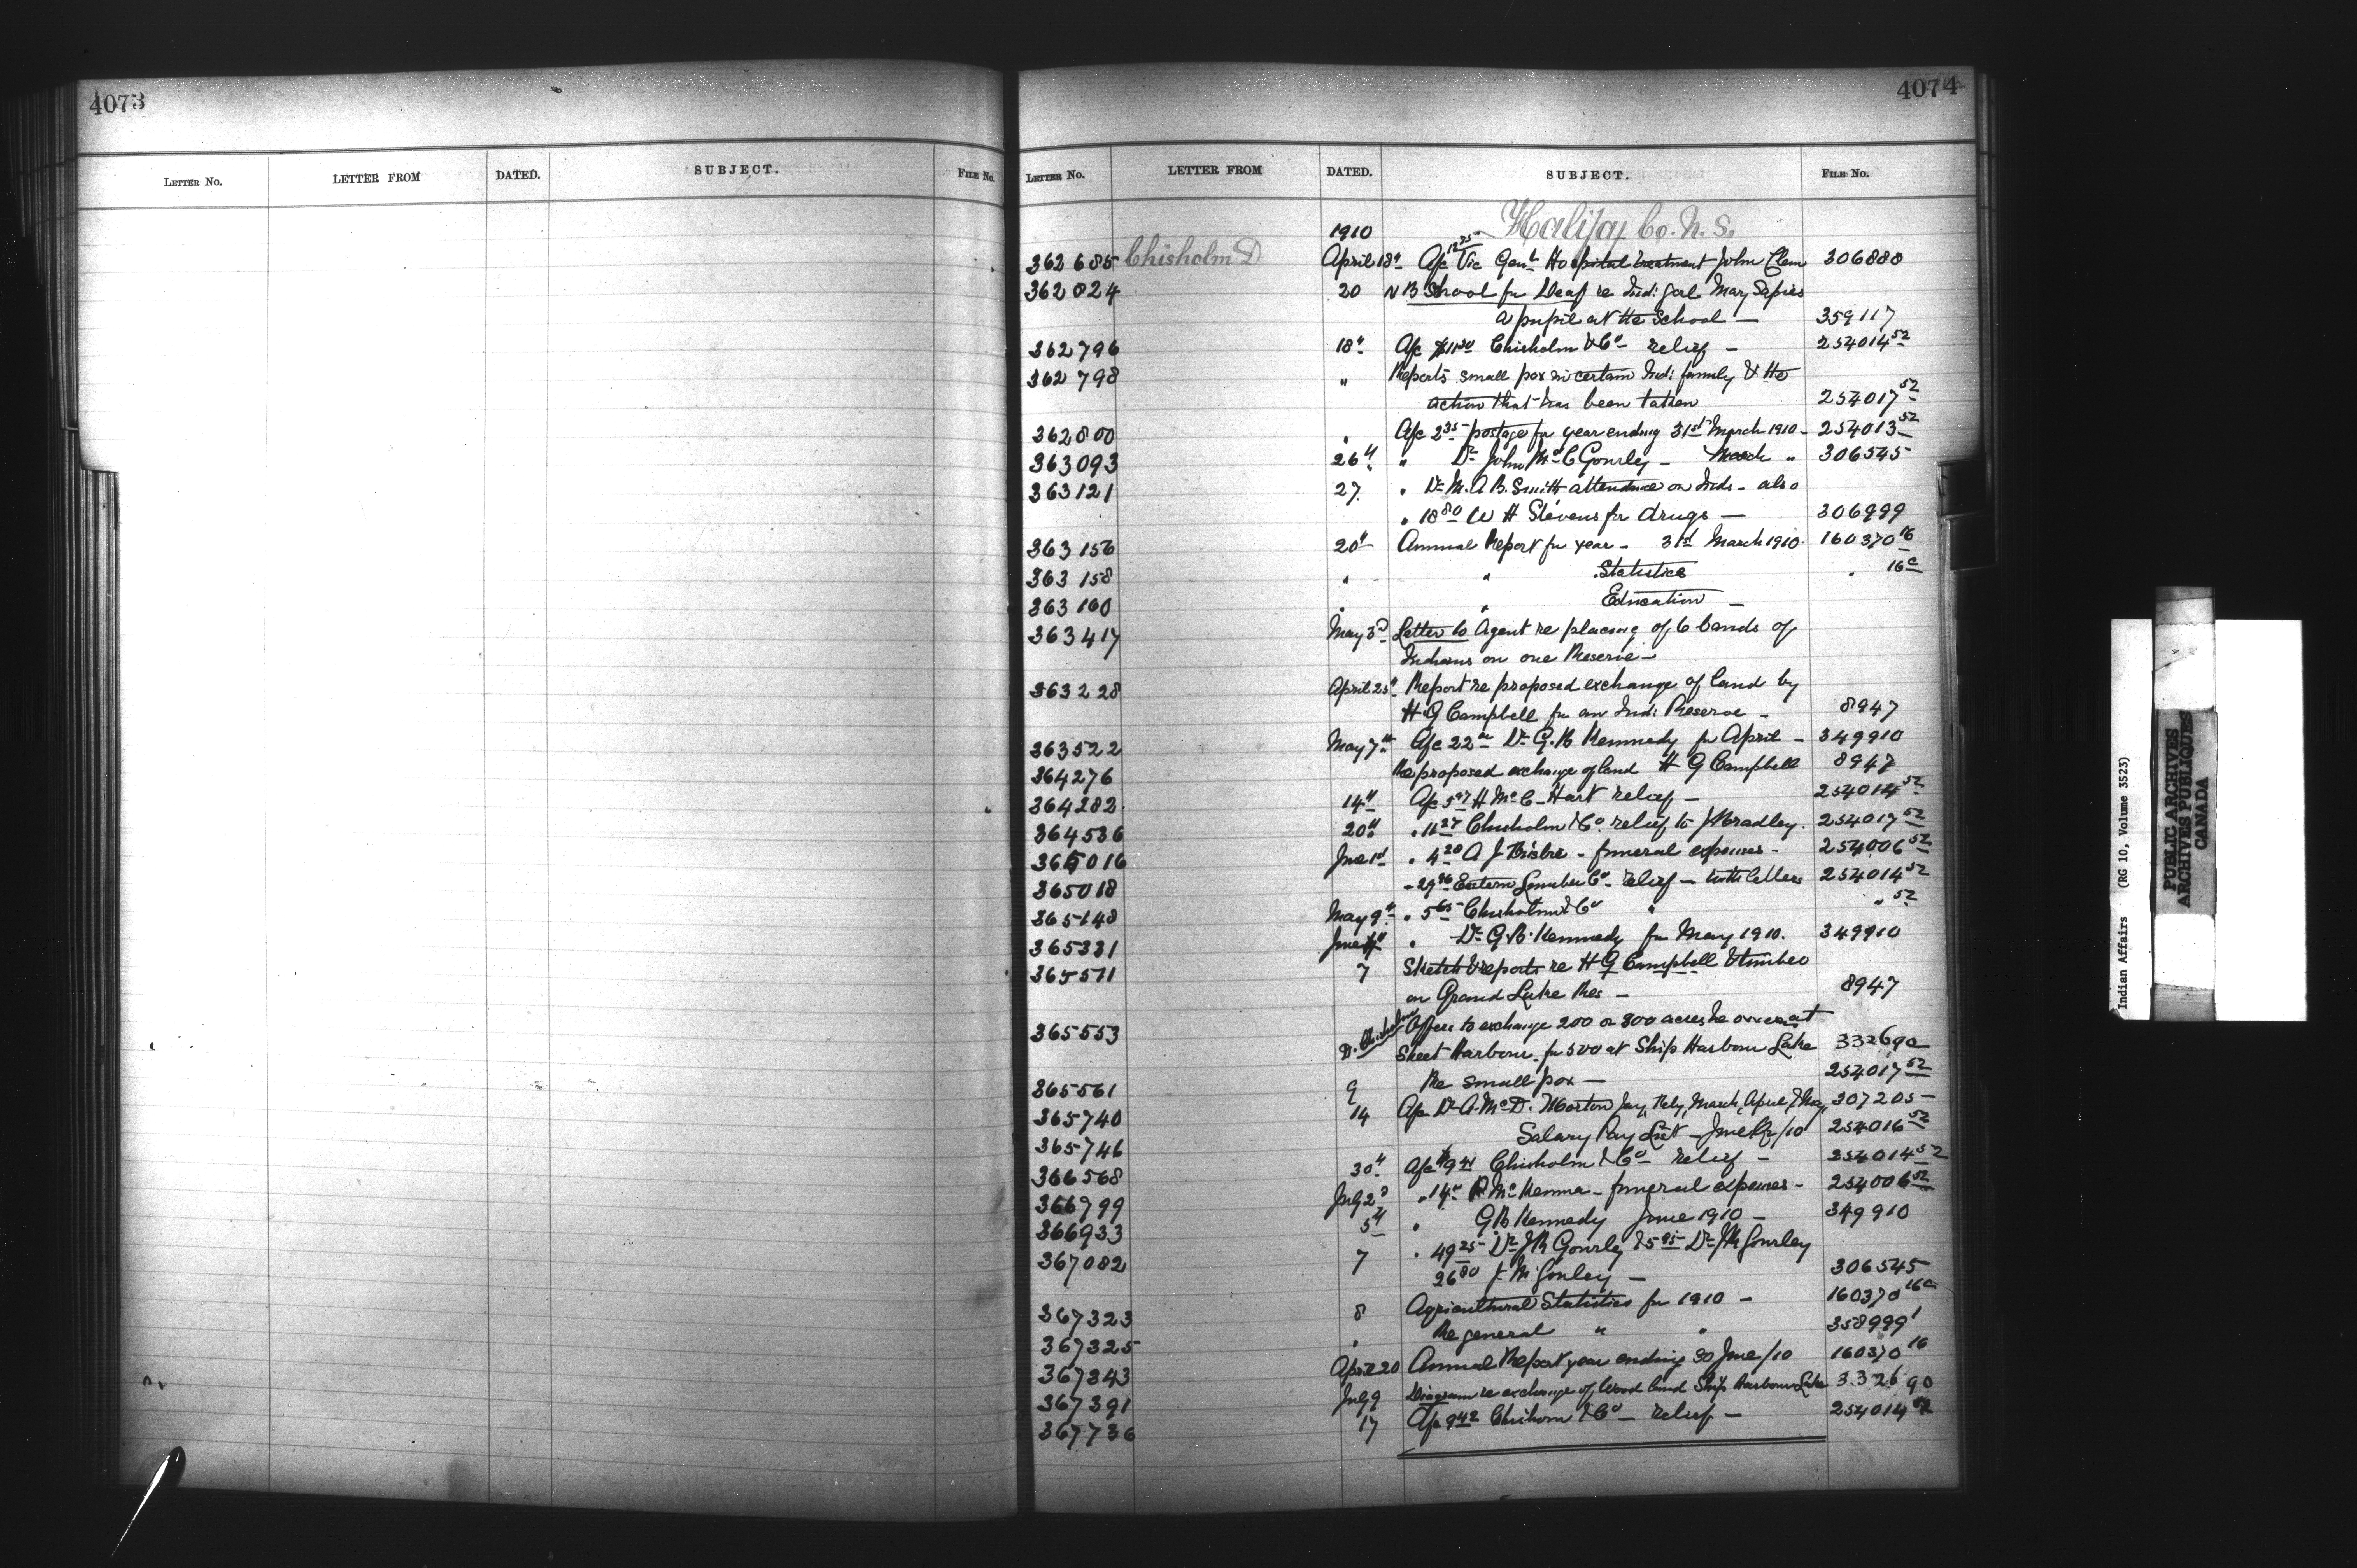 4073
LETTER NO. LETTER FROM DATED. SUBJECT. FILE NO.
4074
LETTER NO. LETTER FROM DATED. SUBJECT. FILE NO.
1910 Halifax Co. N. S.
362685 Chisholm D April 18th A/c 12 75 Vic Genl Hospital treatment John Clem 306888
362824 20 N B School for Deaf re Indi: girl Mary Sapies
a pupil at the School — 359117
362796 18th A/c Chisholm & Co relief — 254014 52
362798 " Reports small pox in certain Indi: family & the
action that has been taken 254017 52
362800 " A/c 2 35 postage for year ending 31st March 1910 — 254013 52
363093 26th " Dr John McC Gourley — March " 306545
363121 27 " Dr M. A. B. Smith attendance on Inds — also
" 18 80 W H Stevens for drugs — 306999
363156 20th Annual Report for year — 31st March 1910 160370 16
363158 " " Statistics " 16c
363160 " " Education —
363417 May 3d Letter to Agent re placing of 6 bands of
Indians on one Reserve —
363228 April 25th Report re proposed exchange of land by
H G Campbell for an Indi: Reserve — 8947
363522 May 7th A/c 22 Dr G. R Kennedy for April — 349910
364276 Re proposed exchange of land H G Campbell 8947
364282 14th A/c H McC Hart relief — 254014 52
364536 20th " 11 27 Chisholm & Co relief to J Bradley 254017 52
365016 June 1st " 4 20 A J — funeral expenses — 254006 52
365018 " 29 96 Eastern Lumber Co relief — with letters 254014 52
365148 May 9th " 5 65 Chisholm & Co " " 52
365331 June " Dr G. R. Kennedy for May 1910. 349910
365511 7 Sketch & reports re H G Campbell & timber
on Grand Lake Res — 8947
365553 D. Chisholm Offers to exchange 200 or 300 acres he owns at
Sheet Harbour for 500 at Ship Harbour Lake 332690
365561 9 Re small pox — 254017 52
365740 14 A/c Dr A. McD. Morton Jany, Feby, March, April & May 307205
365746 Salary Pay List — June Qr/10 254016 52
366568 30th A/c $9 41 Chisholm & Co relief — 254014 52
366799 July 2d " 14 McKenna — funeral expenses — 254006 52
366933 5th " G R Kennedy June 1910 — 349910
367082 7 " 49 25 Dr J R Gourley & 5 95 Dr J M Gourley
26 80 J M Gourley — 306545
367323 8 Agricultural Statistics for 1910 — 160370 16c
367325 " Re general " " 358999 1
367343 April 20 Annual Report year ending 30 June/10 160370 16
367391 July 9 Diagram re exchange of Wood land Ship Harbour Lake 332690
367736 17 A/c 9 42 Chisholm & Co — relief — 254014 52
Indian Affairs (RG 10, Volume 3523)
PUBLIC ARCHIVES
ARCHIVES PUBLIQUES
CANADA